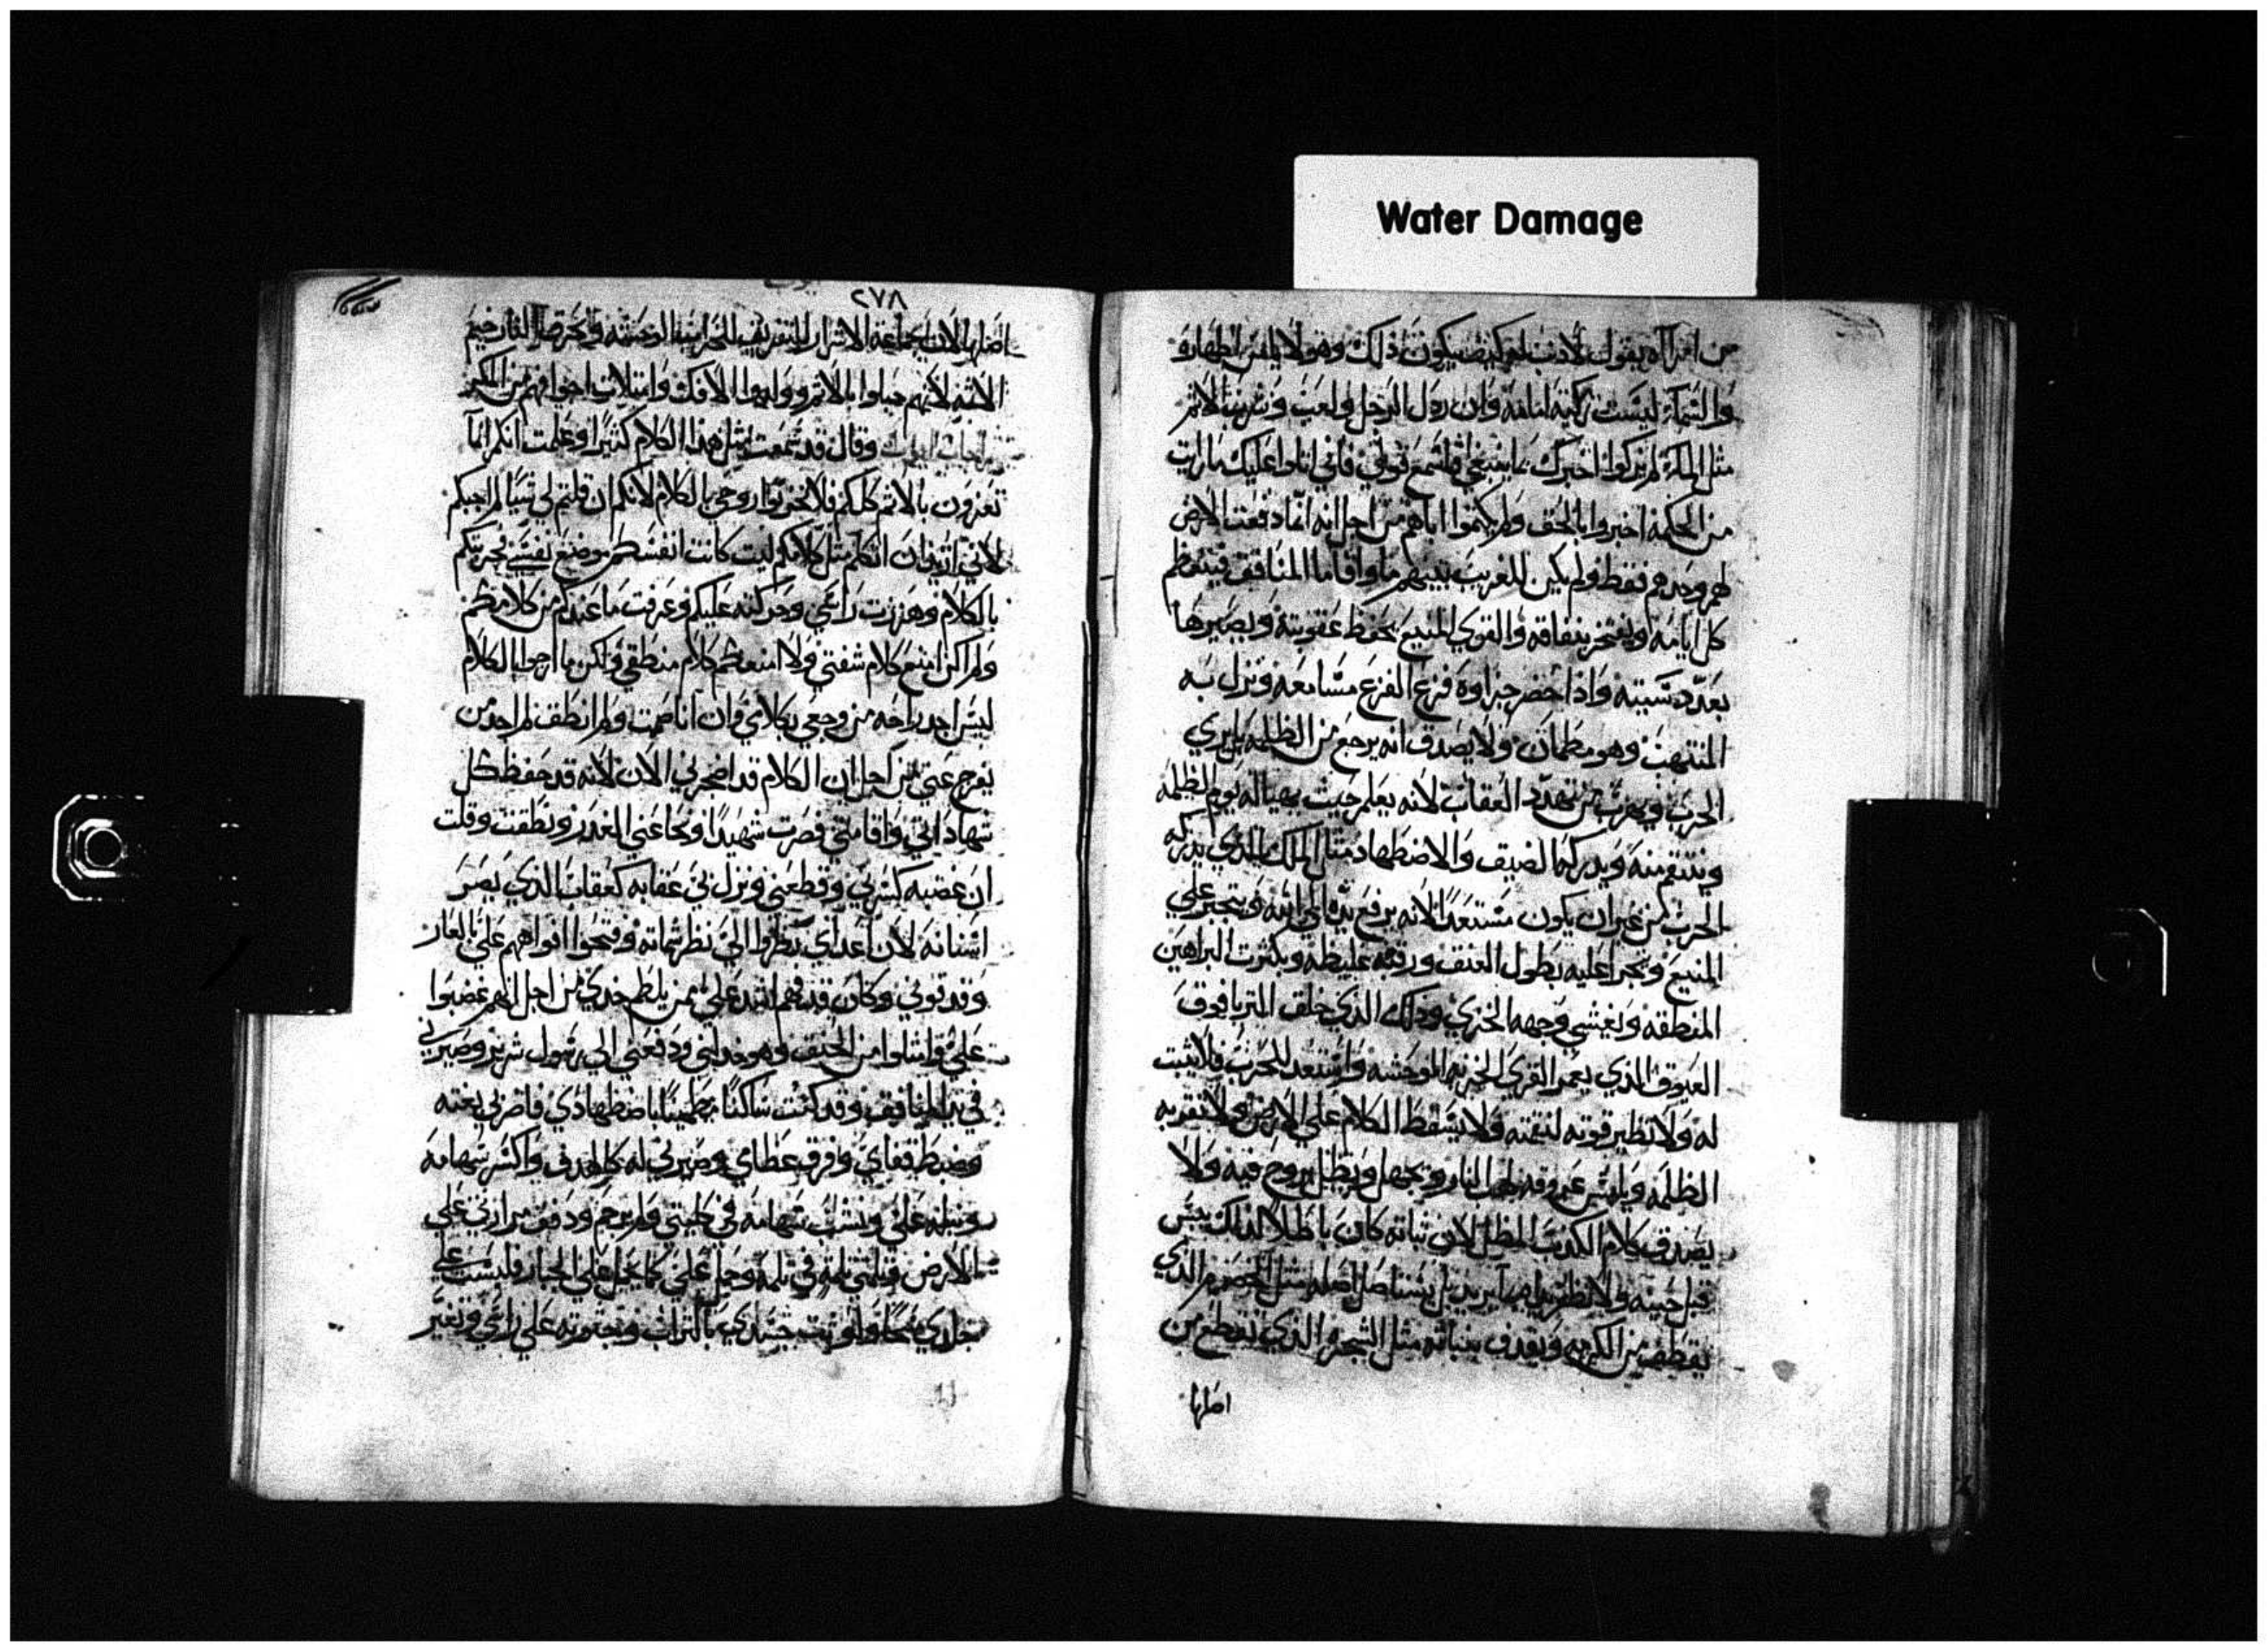 Water Damage
من امراه يقول لا دنب له كيف يكون ذلك وهولا
والسماء ليست زكيه امامه وان ردل الرجل ولعب وشرب الاثم
مثل الماء اخبرك بما ينبغي فاسمع قولي فاني اتلوا عليك ما رايت
من الحكمه اخبروا بالحق ولم يكتموا اباهم من اجل انه انما دفعت الارض
لهم وحدهم فقط ولم يكن للغريب بينهم ماوا فاما المنافق
كل ايامه ويفتخر بنفاقه والقوي المنيع يحفظ عقوبته ويصيرها
بعدد سنيه واذا حضر جزاوه فزع الفزع مسامعه ونزل به
المنتهب وهو مطمان ولا يصدق انه يرجع من الظلمه بل يري
الحرب ويهرب من تهدد العقاب لانه يعلم حيث يهيا له يوم الظلمه
وينتقم منه ويدركه الضيق والاضطهاد مثل الملك الذي يدركه
الحرب من غير ان يكون مستعدا لانه يرفع يده الي الله ويتجبر علي
المنيع ويجرا عليه بطول العنق ورقبه غليظه وبكثرت البراهين
المنطقه ويغشي وجهه الخزي وذلك الذي خلق التريا فوق
العيوق الذي يعمر القري الخربه الموحشه واستعد للحرب فلا يثبت
له ولا تطير قوته لنقمته ولا يسقط الكلام علي الارض ولا تقربه
الظلمه ويلتمس عروقه لهب النار وبجهل ويبطل روح فيه ولا
يصدق كلام الكدب المظل لان نباته كان باطلا لذلك يبس
قبل حينه ولا يستاصل اصله مثل الحصرم الذي
يقطف من الكرمه ويقدف بنباته مثل الشجره الذي تقطع من
اصلها
٢٧٨
اصلها لان جماعه الاشرار للتفريق الخراب الوحشه وتحرقها النار خيم
الاثمه لانهم حبلوا بالاثم وولدوا الافك وامتلات اجوافهم من المكر
وقال قد سمعت مثل هذا الكلام كثيرا وعلمت انكم انما
تعزون بالاثم كلكم فلا تحزنوا روحي بالكلام لانكم ان قلتم لي شيا لم اجبكم
لاني ان اتكلم مثل كلامكم ليت كانت انفسكم موضع نفسي
بالكلام وهززت راسي وحركته عليكم وعرفت ما عندكم من كلامكم
ولم اكن امنع كلام شفتي ولا امنعكم كلام منطقي ولكن بالكلام
ليس اجد راحه من وجعي بكلامي وان انا صمت ولم انطق لم اجد من
يفرج عني من اجل ان الكلام قد اضجرني الان لانه قد حفظ كل
شهاداتي واقامتي فصرت شهيدا ونطقت وقلت
ان غضبه كسرني وقطعني ونزل بي عقابه كعقاب الذي يصر
اسنانه لان اعداي نظروا الي نظر شماته وفتحوا افواههم علي بالعار
من يلطم خدي من اجل انهم غضبوا
علي وامتلوا من الحنق وهو خدلني ودفعني الي رسول شرير وصيرني
في يد المنافق وقد كنت ساكنا مطمينا باضطهادي فاضر بي بغته
وضبط قفاي وفرق عظامي وصيرني له كالهدف واكسر سهامه
ونبله علي ونشب سهامه في كليتي ولم يرحم ودفق مرارتي علي
الارض وثلمني ثلمه في ثلمه وحمل علي كما يحمل علي الجبار فلبست علي
جلدي مسحا ولوثت جسدي بالتراب وحثوته علي راسي وتغير